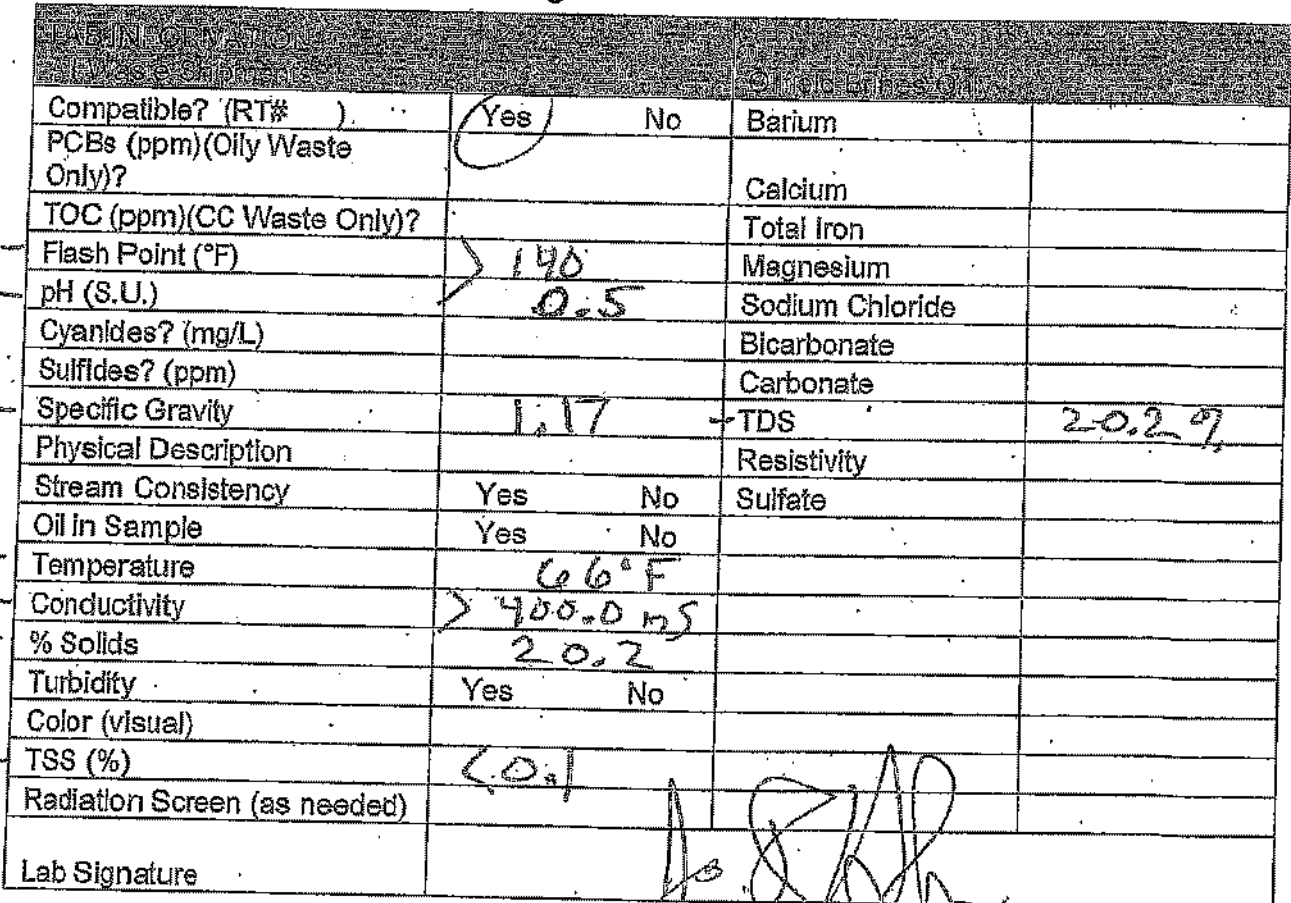 LAB INFORMATION
Waste Shipments
Oilfield Brines Only
Compatible? (RT# ) Yes No Barium
PCBs (ppm)(Oily Waste
Only)? Calcium
TOC (ppm)(CC Waste Only)? Total Iron
Flash Point (°F) > 140 Magnesium
pH (S.U.) 0.5 Sodium Chloride
Cyanides? (mg/L) Bicarbonate
Sulfides? (ppm) Carbonate
Specific Gravity 1.17 TDS 20.2%
Physical Description Resistivity
Stream Consistency Yes No Sulfate
Oil in Sample Yes No
Temperature 66°F
Conductivity > 400.0 mS
% Solids 20.2
Turbidity Yes No
Color (visual)
TSS (%) <0.1
Radiation Screen (as needed)
Lab Signature